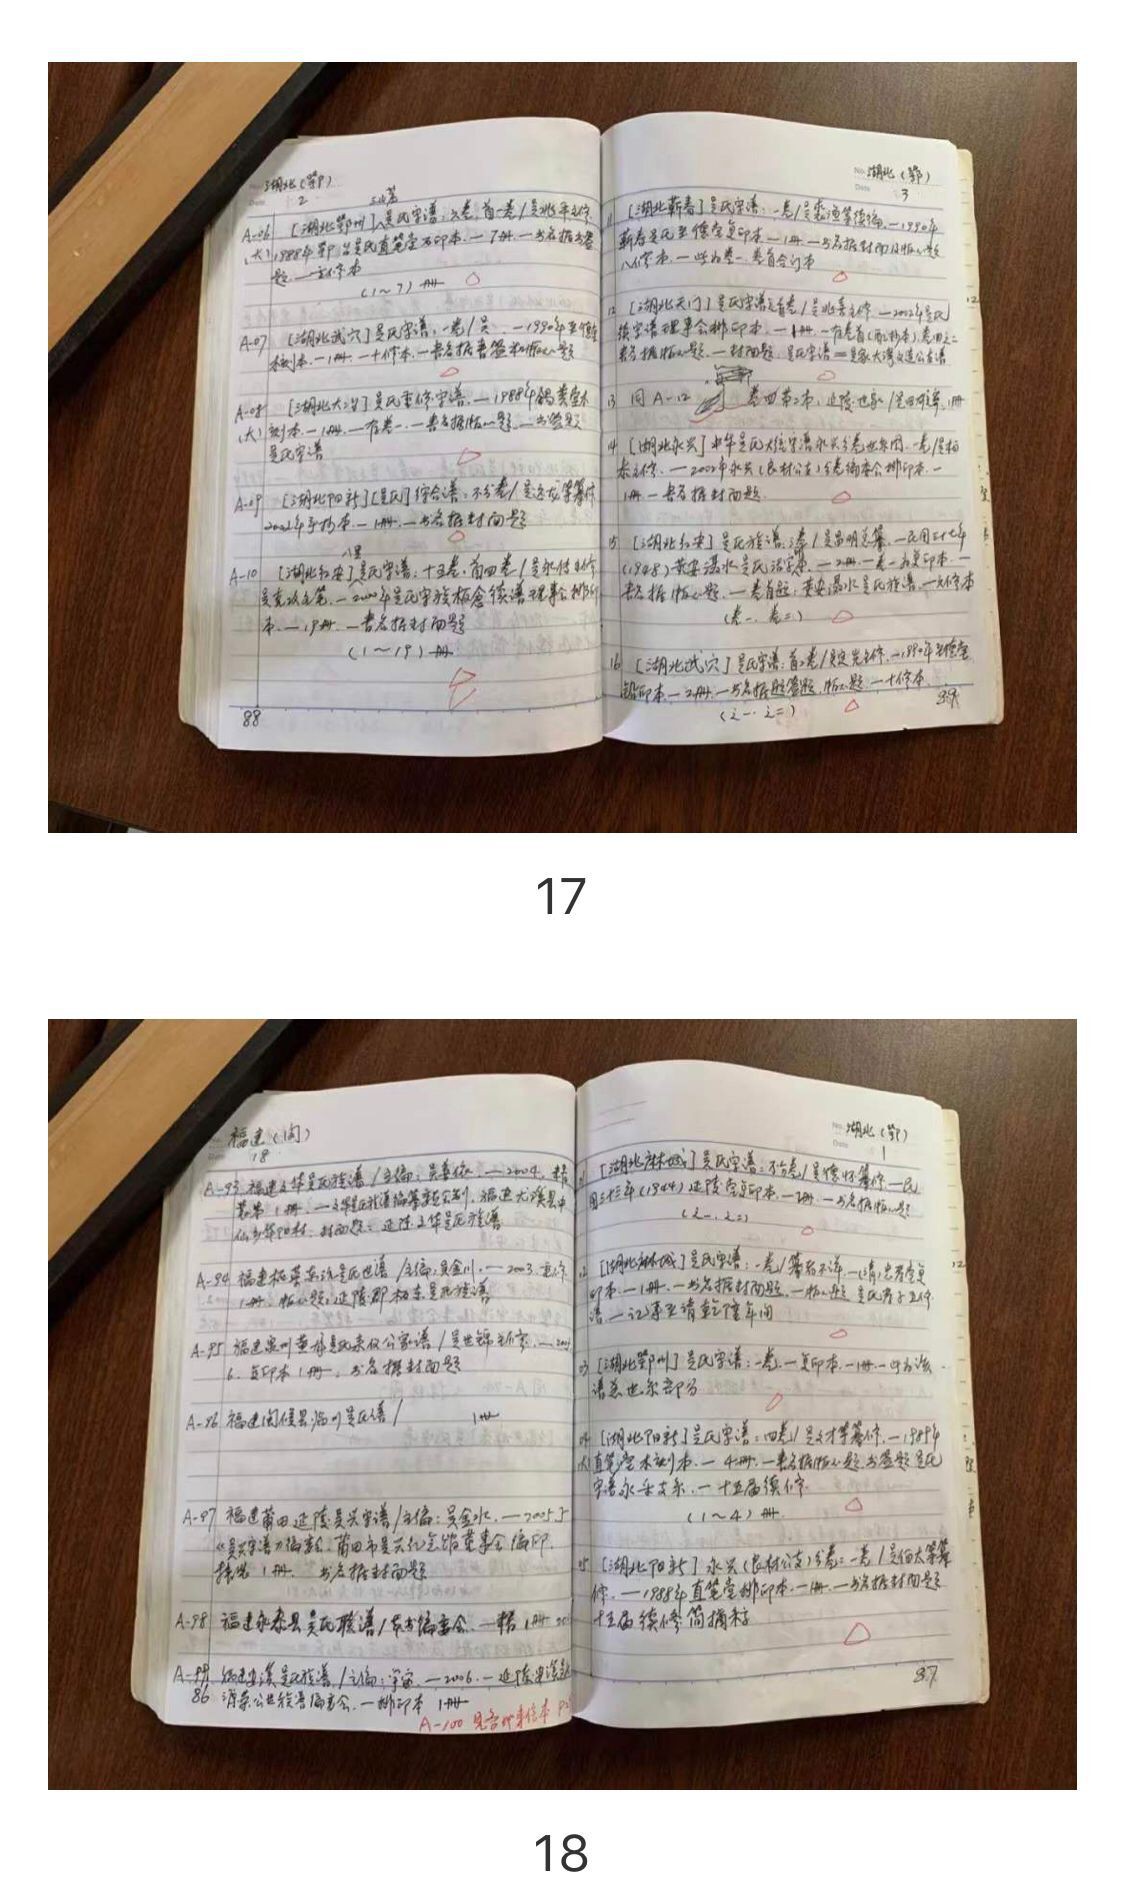 湖北(鄂)
2
A-06 [湖北鄂州]吴氏宗谱:六卷,首一卷/吴兆年主修
(大) 1988年鄂吴氏直笔堂石印本.—7册.—书名据书签
题.—主修本
(1~7)册
A-07 [湖北武穴]吴氏宗谱:一卷/吴 —1990年至德堂
木刻本.—1册.—十修本.—书名据书签和版心题
A-08 [湖北大冶]吴氏重修宗谱.—1988年锡类堂木
(大) 刻本.—1册.—存卷一.—书名据版心题.—书签题
吴氏宗谱
A-09 [湖北阳新][吴氏]综合谱:不分卷/吴 等纂修
2002年手抄本.—1册.—书名据封面题
A-10 八里
[湖北红安]吴氏宗谱:十五卷,首四卷/吴永付主修
吴 主笔.—2000年吴氏宗族 续谱理事会排印
本.—19册.—书名据封面题
(1~19)册
88
湖北(鄂)
3
11 [湖北蕲春]吴氏宗谱:一卷/吴 等续编.—1990年
蕲春吴氏至德堂复印本.—1册.—书名据封面及版心题
八修本.—此为卷一、卷首合订本
12 [湖北天门]吴氏宗谱 首卷/吴兆 主修.—2002年吴氏
续宗谱理事会排印本.—1册.—存卷首(配抄本),卷四之二
书名据版心题.—封面题:吴氏宗谱—吴家大湾 公世谱
13 同A-12 卷四第二本,延陵世家/ 1册
14 [湖北永兴]中华吴氏大统宗谱永兴分卷世系图:一卷/吴柏
泰主修.—2002年永兴(良材公支)分卷编委会排印本.—
1册.—书名据封面题
15 [湖北红安]吴氏族谱: 卷/吴 总纂.—民国三十七年
(1948)黄安滠水吴氏活字本.—2册.—卷一为复印本.—
书名据版心题.—卷首题:黄安滠水吴氏族谱.—六修本
(卷一、卷二)
16 [湖北武穴]吴氏宗谱:首二卷/吴 主修.—1990年至德堂
铅印本.—2册.—书名据题签题,版心题.—十修本
(之一、之二)
89
17
福建(闽)
18
A-93 福建文华吴氏族谱/主编:吴 .—2004.精
装第1册.—文华吴氏族谱编纂委员会刻.福建尤溪县中
仙乡华阳村.封面题:延陵文华吴氏族谱
A-94 福建柘荣东 吴氏世谱/主编:吴金川.—2003.重修
1册.版心题:延陵郡柘东吴氏族谱
A-95 福建泉州黄 吴氏来仪公家谱/吴世锦主修.—200
6.复印本1册.书名据封面题
A-96 福建闽侯县 吴氏谱/ 1册
A-97 福建莆田延陵吴兴宗谱/主编:吴金水.—2005.5
《吴兴宗谱》编委会,莆田市吴兴纪念馆董事会编印.
精装1册.书名据封面题
A-98 福建永泰县吴氏联谱/本书编委会.—精1册
A-99 福建安溪吴氏族谱/主编:宇宙.—2006.—延陵安溪
公世族谱编委会.—排印本 1册
A-100 见各地来信本
86
湖北(鄂)
1
01 [湖北麻城]吴氏宗谱:不分卷/吴 纂修.—民
国三十三年(1944)延陵堂复印本.—2册.—书名据版心题
(之一、之二)
02 [湖北麻城]吴氏宗谱:一卷/纂者不详.—(清)忠孝堂复
印本.—1册.—书名据封面题.—版心题 吴氏 五修
谱.—记事至清乾隆年间
03 [湖北鄂州]吴氏宗谱:一卷.—复印本.—1册.—此为该
谱总世系部分
04 [湖北阳新]吴氏宗谱:四卷/吴文才等纂修.—1988年
(大) 直笔堂木刻本.—4册.—书名据版心题,书签题:吴氏
宗谱永 支系.—十五届续修
(1~4)册
05 [湖北阳新]永兴(良材公支)分卷:一卷/吴伯太等纂
修.—1988年直笔堂排印本.—1册.—书名据封面题
十五届续修简摘稿
87
18